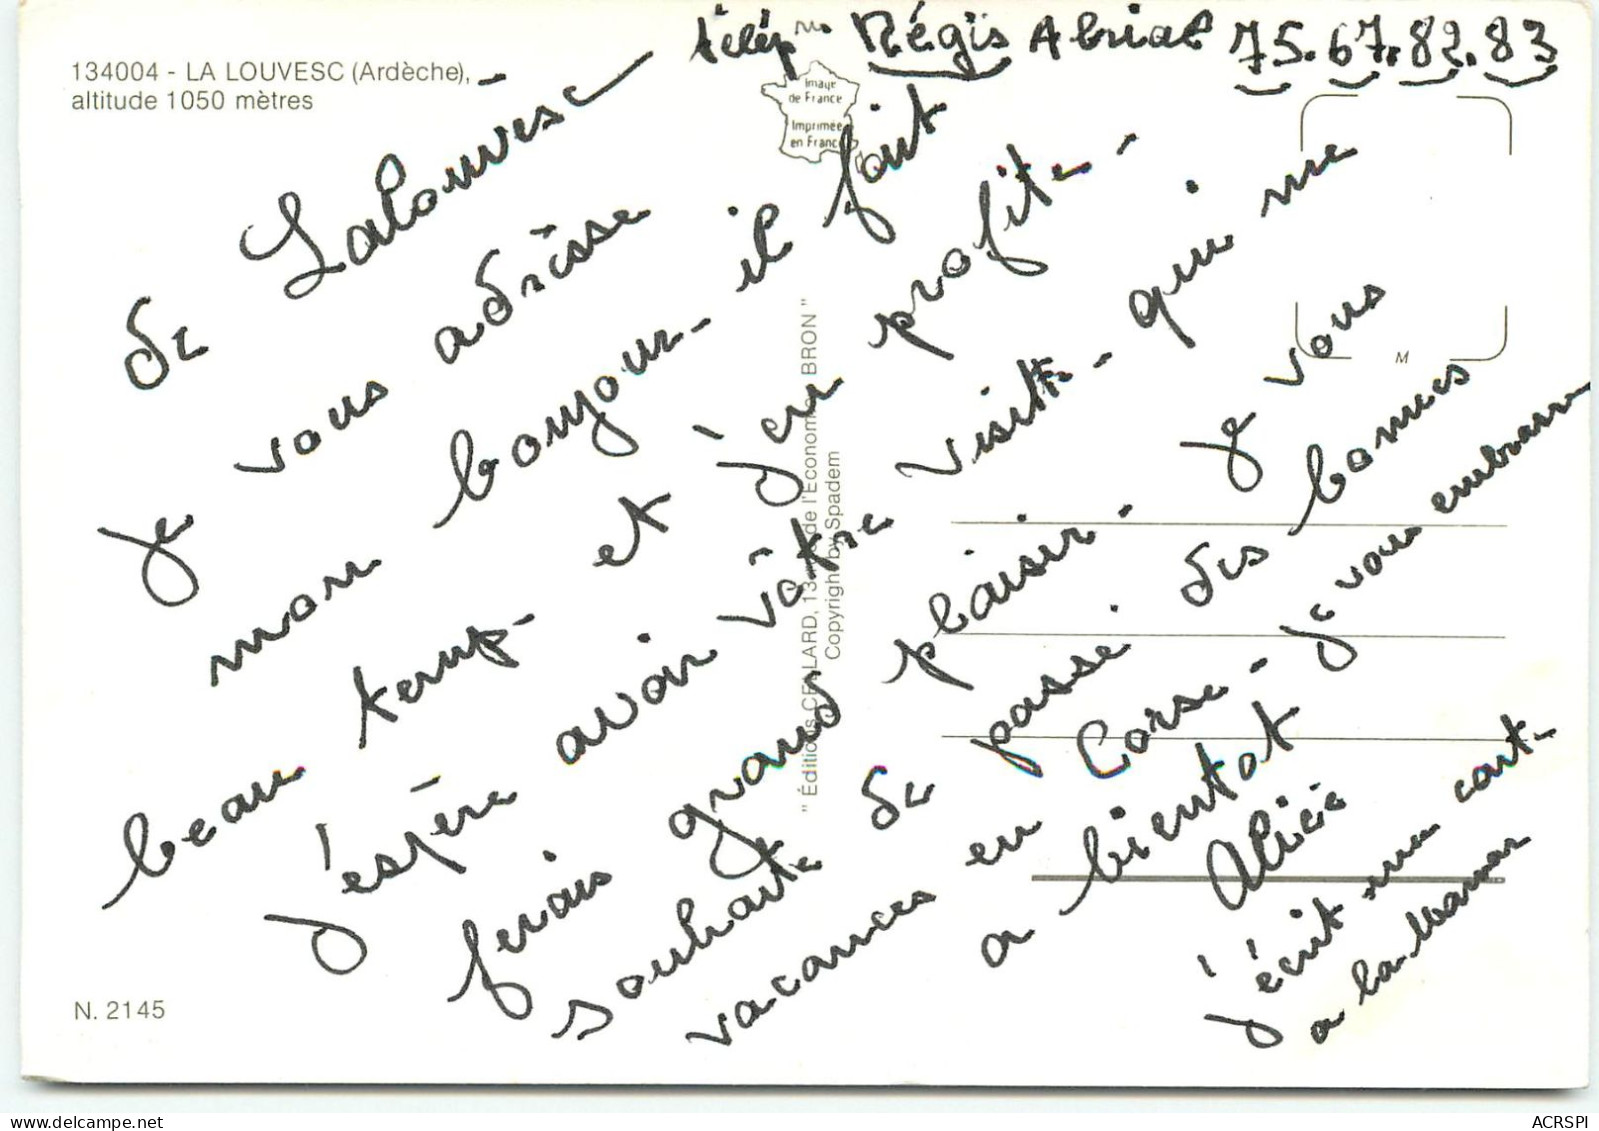 télép ne Régis Abrial 75.67.82.83
134004 - LA LOUVESC (Ardèche),
altitude 1050 mètres
Image
de France
Imprimée
en France
de Lalouvesc
je vous adrèsse
mon bonjour - il fait
beau temps - et j'en profite -
j'espère avoir vôtre visite - qui me
ferais grand plaisir - je vous
souhaite de passé des bonnes
vacances en Corse - je vous embrasse
a bientot
Alicia
j'écrit une carte
a la
" Éditions CELLARD, de l'Économie BRON "
Copyright by Spadem
M
N. 2145
ACRSPI